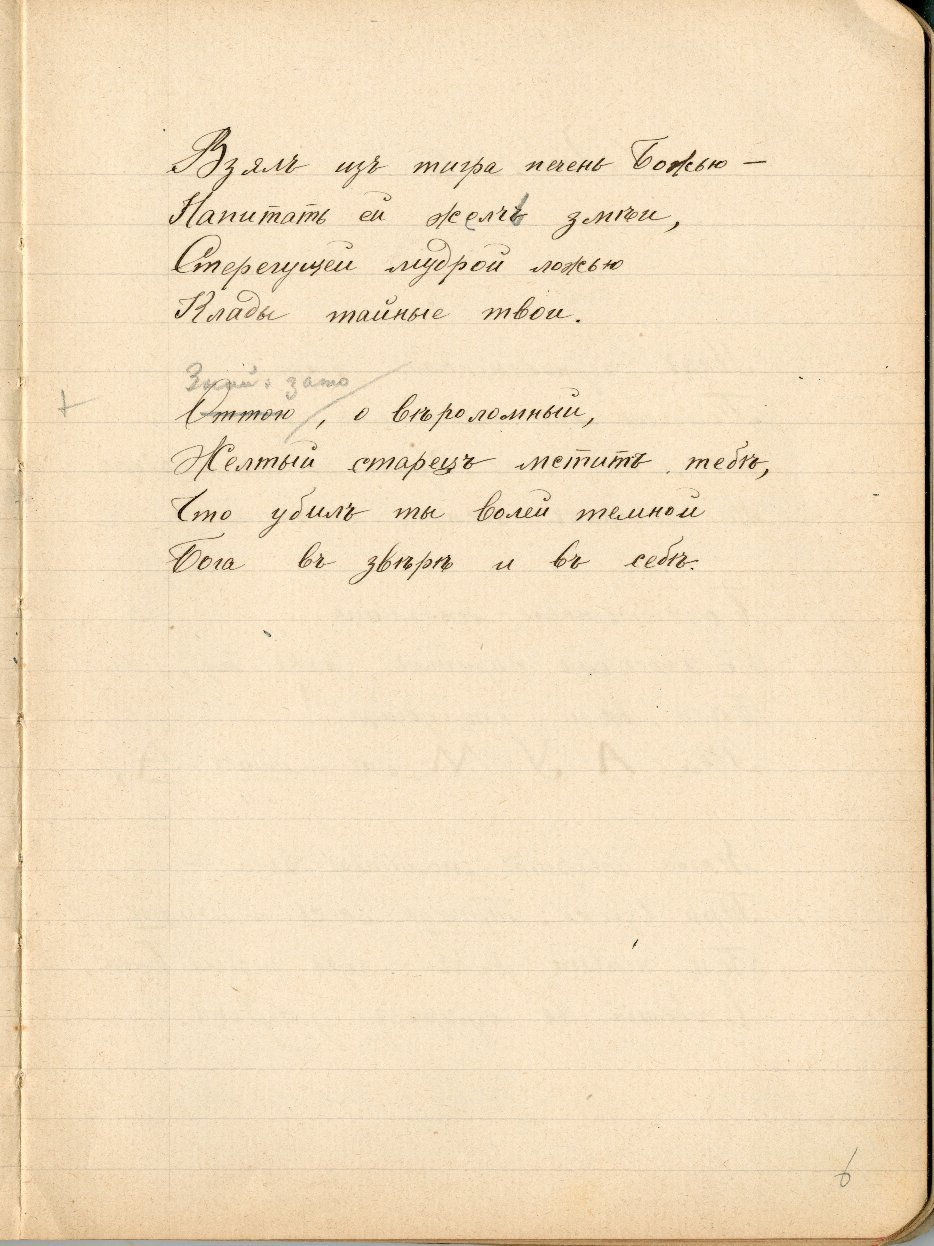 Взялъ изъ тигра печень Божью —
Напитать ей желчь змѣи,
Стерегущей мудрой ложью
Клады тайные твои.
Знай: зато
Оттого, о вѣроломный,
Желтый старецъ мститъ тебѣ,
Что убилъ ты волей темной
Бога въ звѣрѣ и въ себѣ.
6